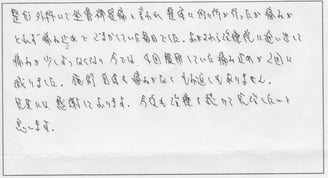 整形外科にて坐骨神経痛と言われ 整体に何ヶ所か行ったが 痛みが
とれず 痛み止めで ごまかしていた毎日でした。治療院に通い出して
痛みが少しずつなくなり 今では 4回服用していた痛み止めが 2回に
減りました。施術自体も痛みがなく もみ返しもありません。
先生には 感謝しております。今後も治療を続けて完治したいと
思います。